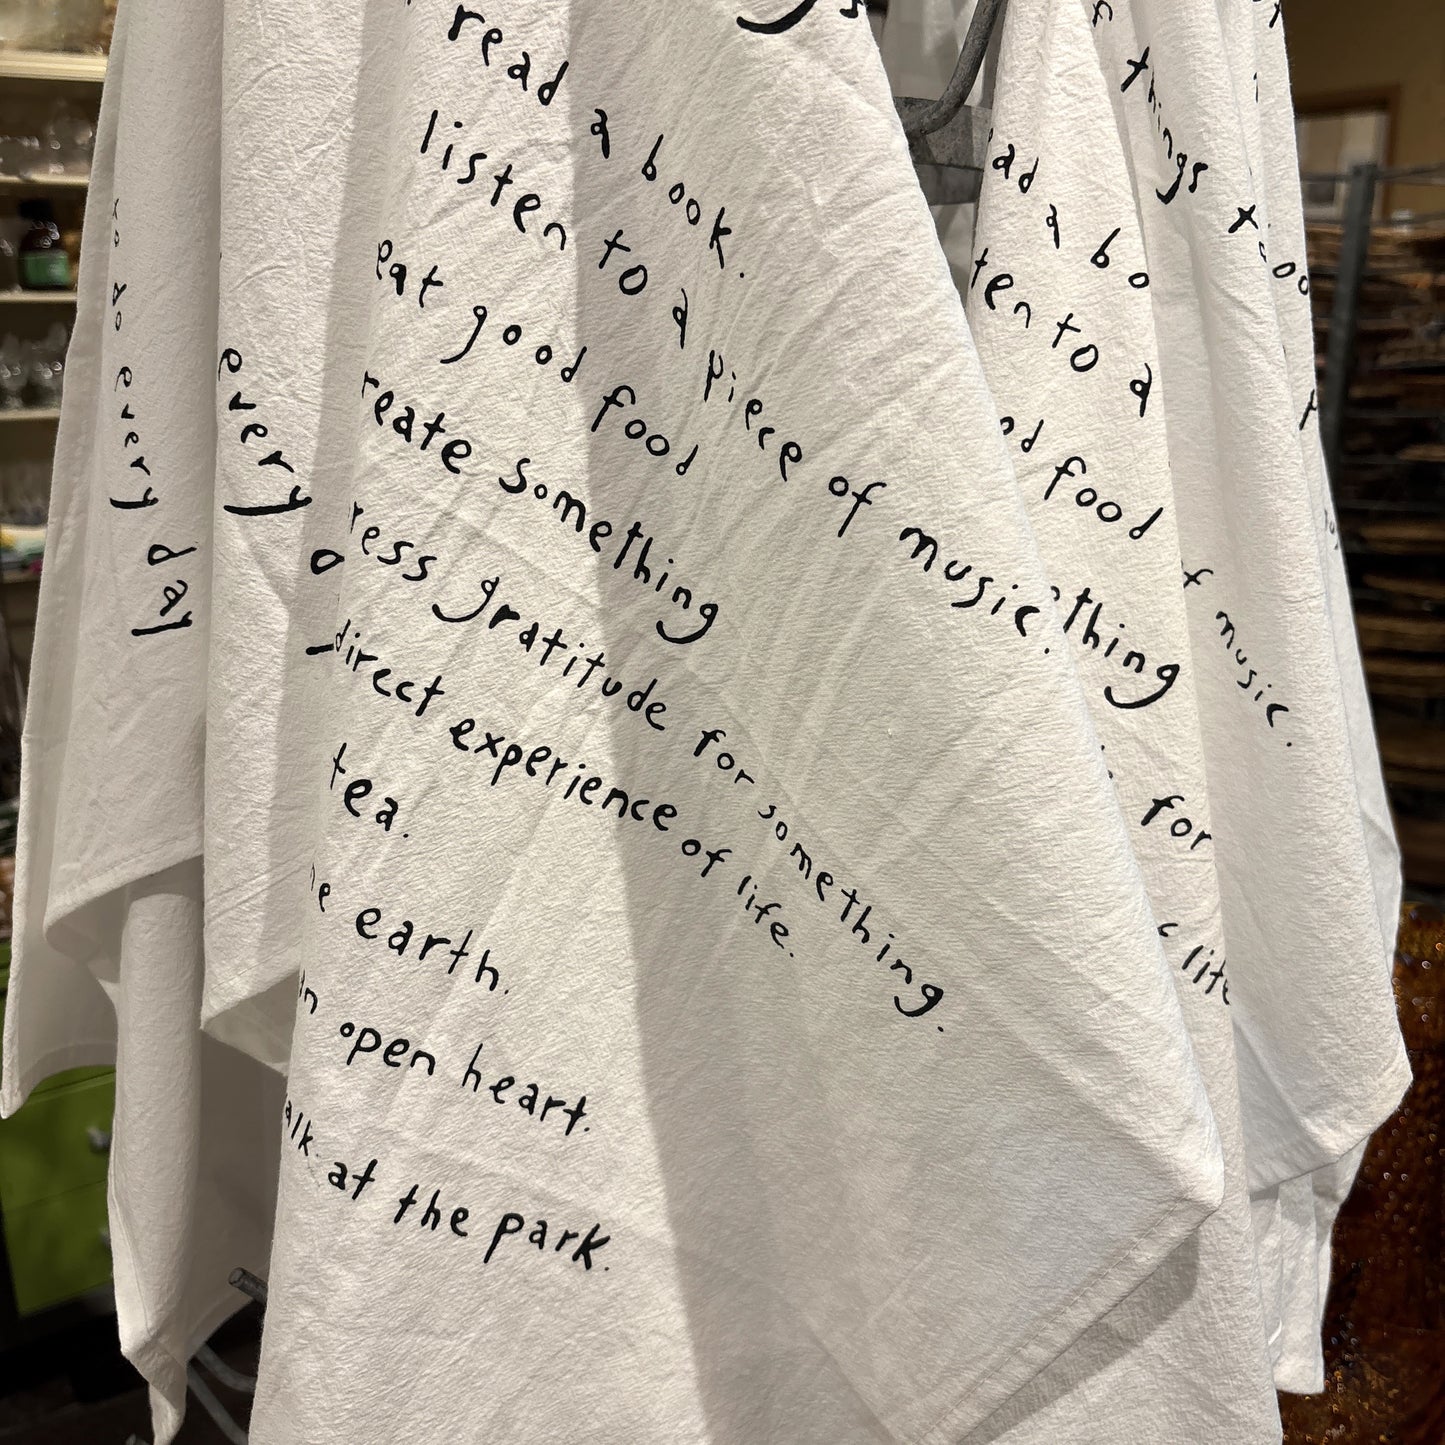 read a book.
listen to a piece of music.
eat good food
reate something
ress gratitude for something.
direct experience of life.
tea.
earth.
open heart.
alk at the park.
to do every day
every
ad a bo
ten to a
od food
thing
for
life
f things to do
f music.